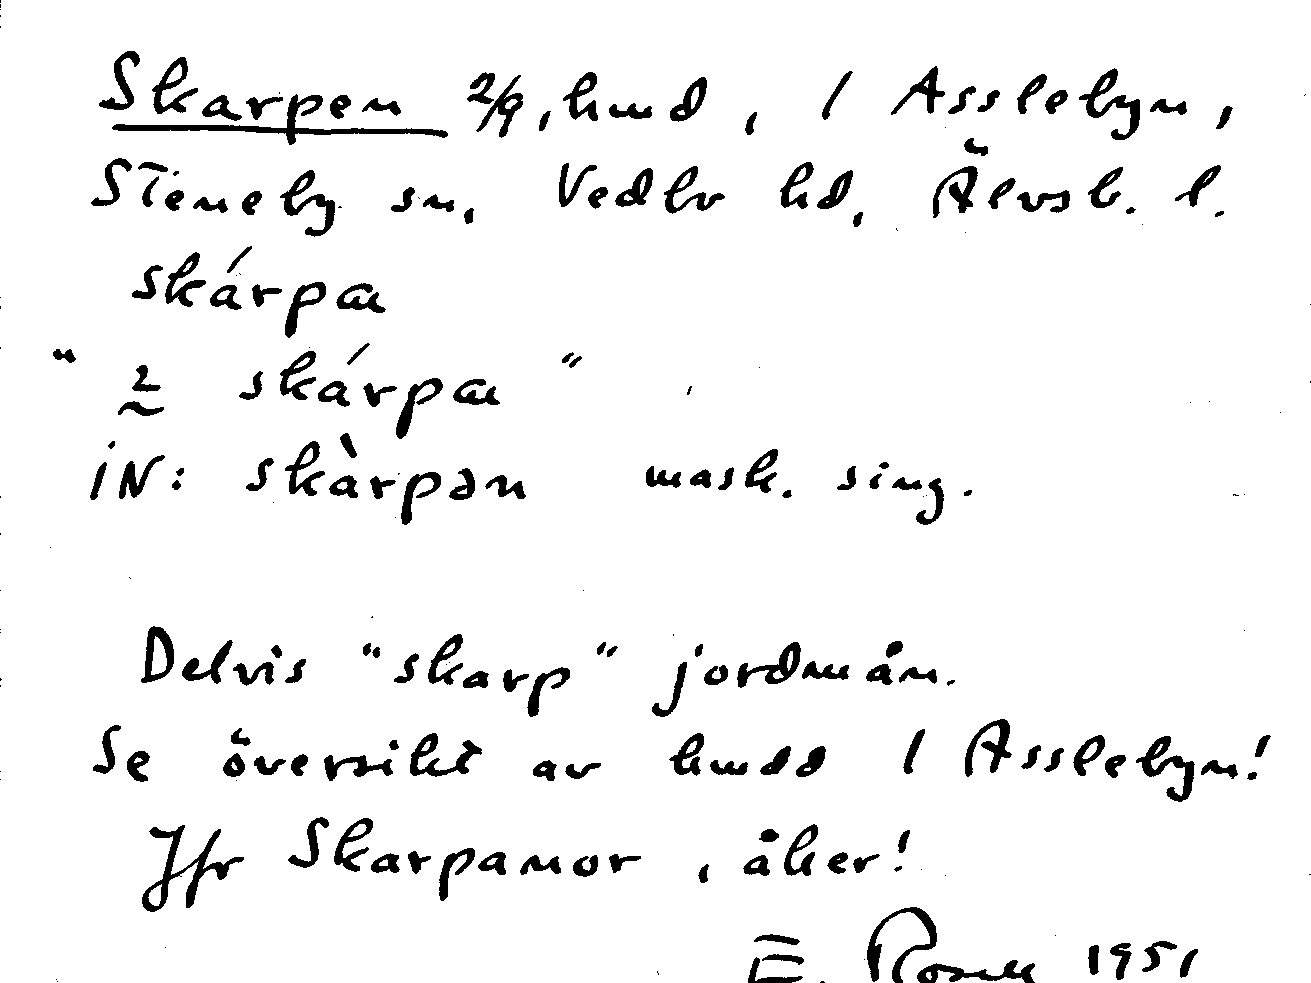 Skarpen 2/9, hmd, 1 Asslebyn,
Steneby sn, Vedbo hd, Älvsb. l.
skárpæ
" 2 skárpæ "
iN: skàrpən mask. sing.
Delvis "skarp" jordmån.
Se översikt av hmdd 1 Asslebyn!
Jfr Skarpanor, åker!
E. Rosell 1951